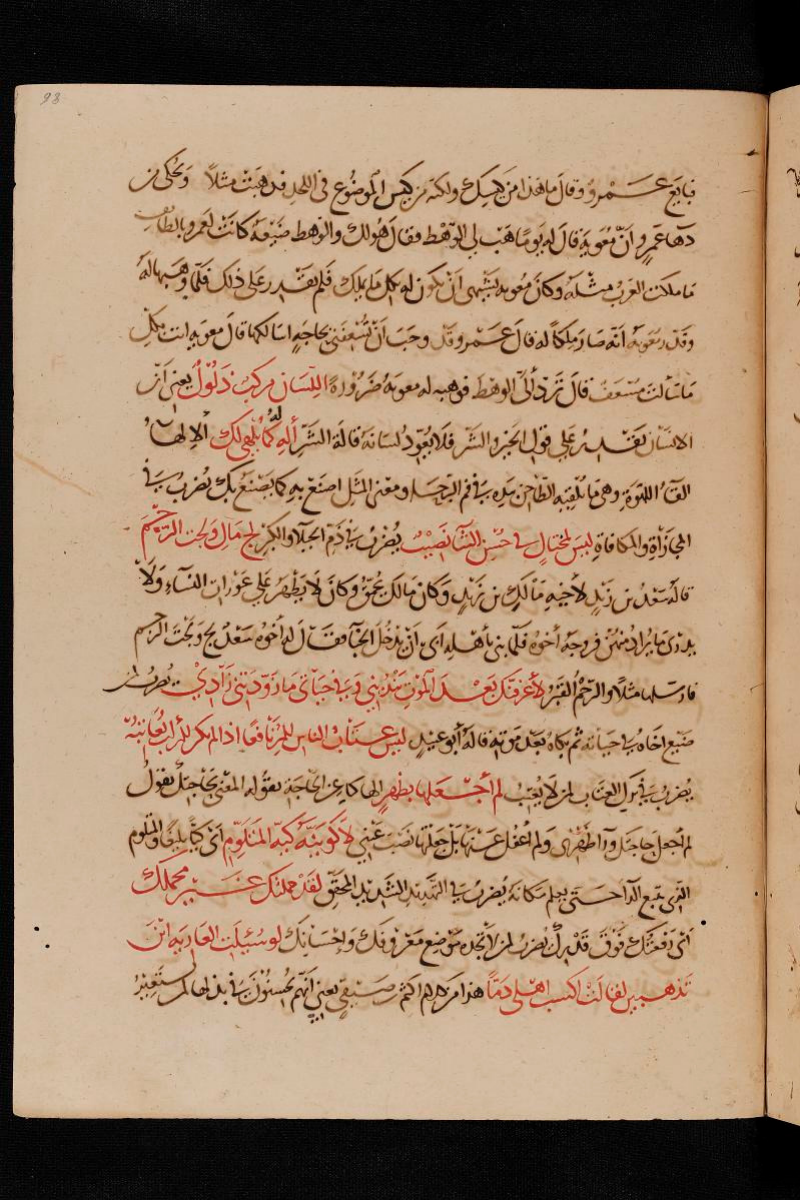 98
فبايع عمرو وقال ما هذا من كيسك ولكنه من كيس الموضوع في اللحد فذهبت مثلاً ويحكى من
دهاء عمرو انّ معوية قال له يومًا هب لي الوهط فقال هو لك والوهط ضيعة كانت لعمرو بالطائف
ما ملكت العرب مثله وكان معوية يشتهي ان يكون له بكل ما يملك فلم يقدر على ذلك فلما وهبها له
وقدر معوية انه صار ملكًا له قال عمرو قد وجب ان تسعفني بحاجة اسالكها قال معوية انت بكل
ما سالت مسعف قال ترد الى الوهط فوهبه له معوية ضرورة اللسان مركب ذلول يعني انّ
الانسان يقدر على قول الخير والشر فلا يعود لسانه قالة الشر أله له كما يلهي لك الالهاء
القاء اللهوة وهي ما يلقيه الطاحن بيده في فم الرحا ومعنى المثل اصنع به كما يصنع بك يضرب في
المجازاة والمكافاة ليس لمختال في حسن الثنا نصيب يضرب في ذم الخيلاء والكبر لج مال ولجت الرجم
قاله سعد بن زيد لاخيه مالك بن زيد وكان مالك يحمق وكان لا يظهر على عورات النساء ولا
يدري ما يراد منهن فزوجه أخوه فلما بنى باهله ابى ان يدخل الخباء فقال له أخوه سعد لج ولجت الرجم
فارسلها مثلا والرجم القبر لأعرفنك بعد الموت تندبني وفي حياتي ما زودتني زادي يضرب لمن
ضيع اخاه في حياته ثم بكاه بعد موته قاله أبو عبيد ليس عتاب الناس للمرء نافعًا اذا لم يكن للمرء لب يعاتبه
يضرب في ترك العتاب لمن لا يعتب لم أجعلها بظهر الها كناية عن الحاجة يقوله المعني بحاجتك يقول
لم اجعل حاجتك وراء ظهري ولم اغفل عنها بل جعلتها نصب عيني لاكوينه كية المتلوم اي كيًّا بليغًا والمتلوم
الذي يتبع الداء حتى يعلم مكانه يضرب في التهديد الشديد المحقق لقد حملتك غير محملك
اي رفعتك فوق قدرك يضرب لمن لا تجده موضع معروفك واحسانك لو سئلت العارية اين
تذهبين لقالت اكسب اهلي ذمًّا هذا من كلام اكثم بن صيفي يعني انهم يحسنون في بذلها لمن يستعير